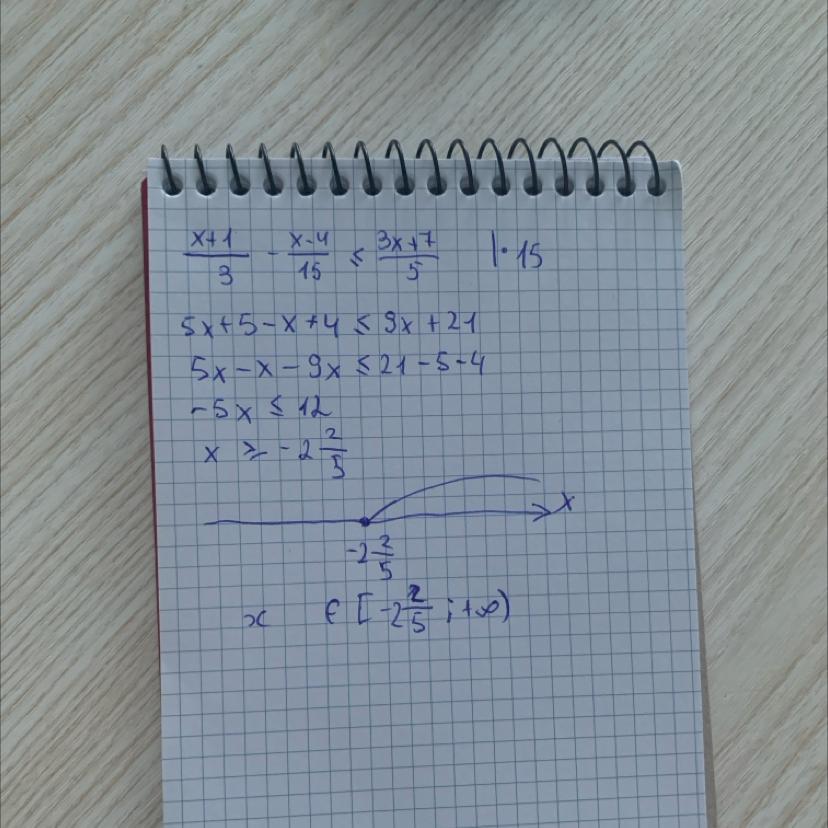 x+1/3 - x-4/15 ≤ 3x+7/5 |· 15
5x+5-x+4 ≤ 9x+21
5x-x-9x ≤ 21-5-4
-5x ≤ 12
x ≥ -2 2/5
x
-2 2/5
x ∈ [-2 2/5 ; +∞)